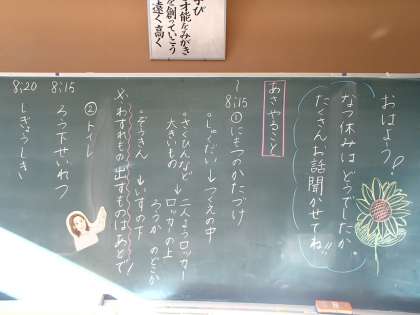 学び
才能をみがき
を創っていこう
遠く高く
おはよう!
なつ休みはどうでしたか。
たくさんお話聞かせてね!!
あさやること
~
8:15
①にもつのかたづけ
・しゅくだい→つくえの中
・さくひんなど
大きいもの
→二人ようロッカー
ロッカーの上
ろうか のどこか
・ぞうきん→いすの下
※わすれもの出すものはあとで!
②トイレ
8:15
ろう下せいれつ
8:20
しぎょうしき